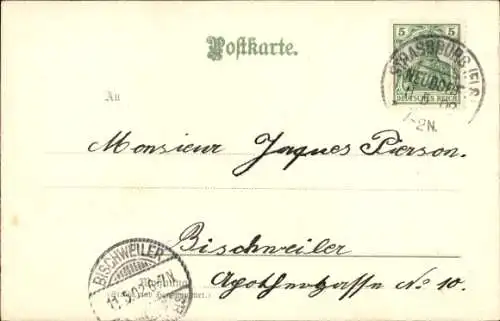 Postkarte.
5 5
DEUTSCHES REICH
STRASSBURG (ELS
NEUDORF
1-2N.
An
Monsieur Jaques Pierson.
Bischweiler
Apothergasse No 10.
BISCHWEILER
6-7N
Wohnung